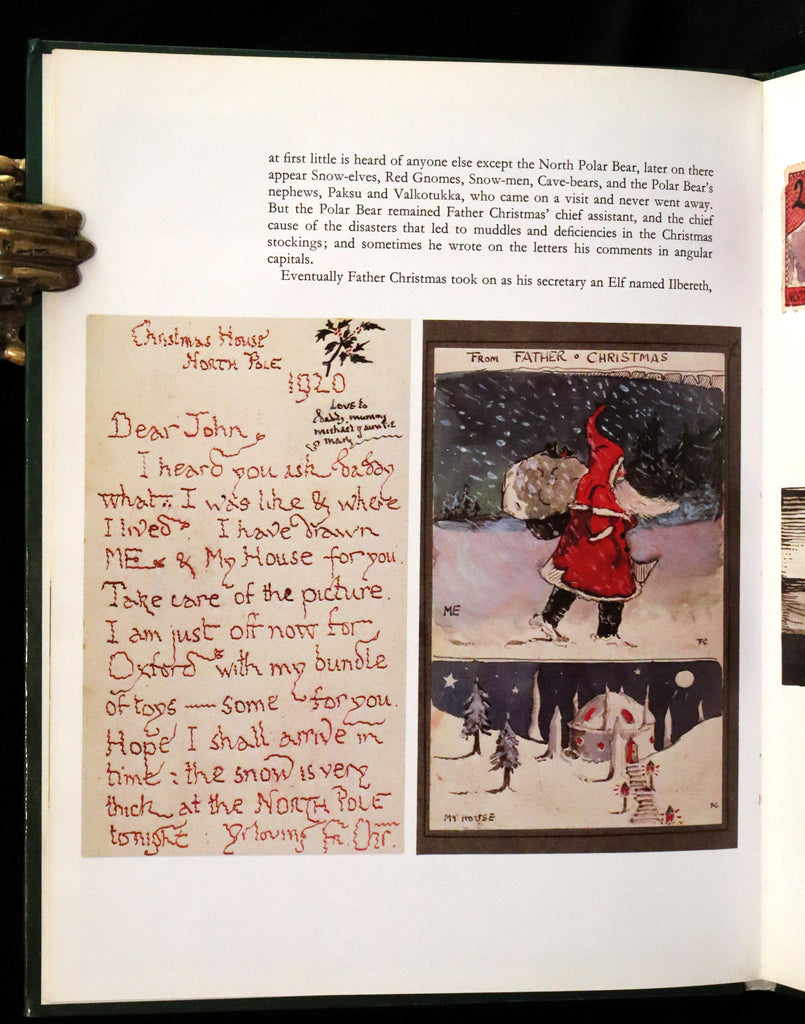 at first little is heard of anyone else except the North Polar Bear, later on there
appear Snow-elves, Red Gnomes, Snow-men, Cave-bears, and the Polar Bear's
nephews, Paksu and Valkotukka, who came on a visit and never went away.
But the Polar Bear remained Father Christmas' chief assistant, and the chief
cause of the disasters that led to muddles and deficiencies in the Christmas
stockings; and sometimes he wrote on the letters his comments in angular
capitals.
Eventually Father Christmas took on as his secretary an Elf named Ilbereth,
Christmas House
NORTH POLE
1920
Love to
daddy, mummy
michael & auntie
mary
Dear John
I heard you ask daddy
what I was like & where
I lived. I have drawn
ME & My House for you.
Take care of the picture.
I am just off now for
Oxford with my bundle
of toys — some for you.
Hope I shall arrive in
time: the snow is very
thick at the NORTH POLE
tonight. Yr loving Fr. Chr.
FROM FATHER • CHRISTMAS
ME
FC
MY HOUSE
FC